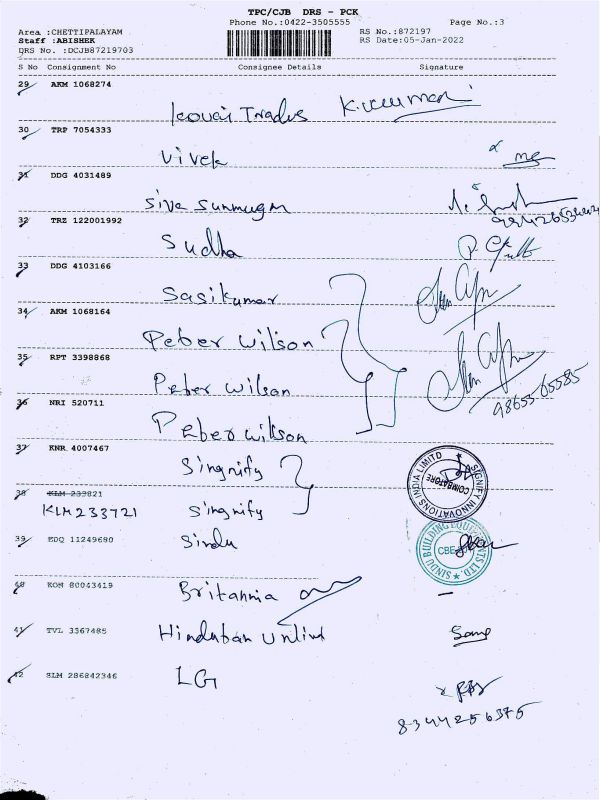 TPC/CJB DRS - PCK
Phone No.:0422-3505555 Page No.:3
Area :CHETTIPALAYAM RS No.:872197
Staff :ABISHEK RS Date:05-Jan-2022
DRS No. :DCJB87219703
S No Consignment No Consignee Details Signature
29 AKM 1068274
Kovai Trades
30 TRP 7054333
Vivek
31 DDG 4031489
Siva Sunmugam
32 TRZ 122001992
Sudha
33 DDG 4103166
Sasikumar
34 AKM 1068164
Peter Wilson
35 RPT 3398868
Peter Wilson
98655 65585
36 NRI 520711
Peter Wilson
37 KNR 4007467
Singnify
SIGNIFY INNOVATIONS INDIA LIMITD
COIMBATORE
38 KLM 233821
KLM233721 Singnify
39 EDQ 11249680
Sindu
SINDU BUILDING EQUIPMENTS LTD.
40 KON 80043419
Britannia
41 TVL 3367485
Hindustan Unliut
42 SLM 286842346
LG
8344256375